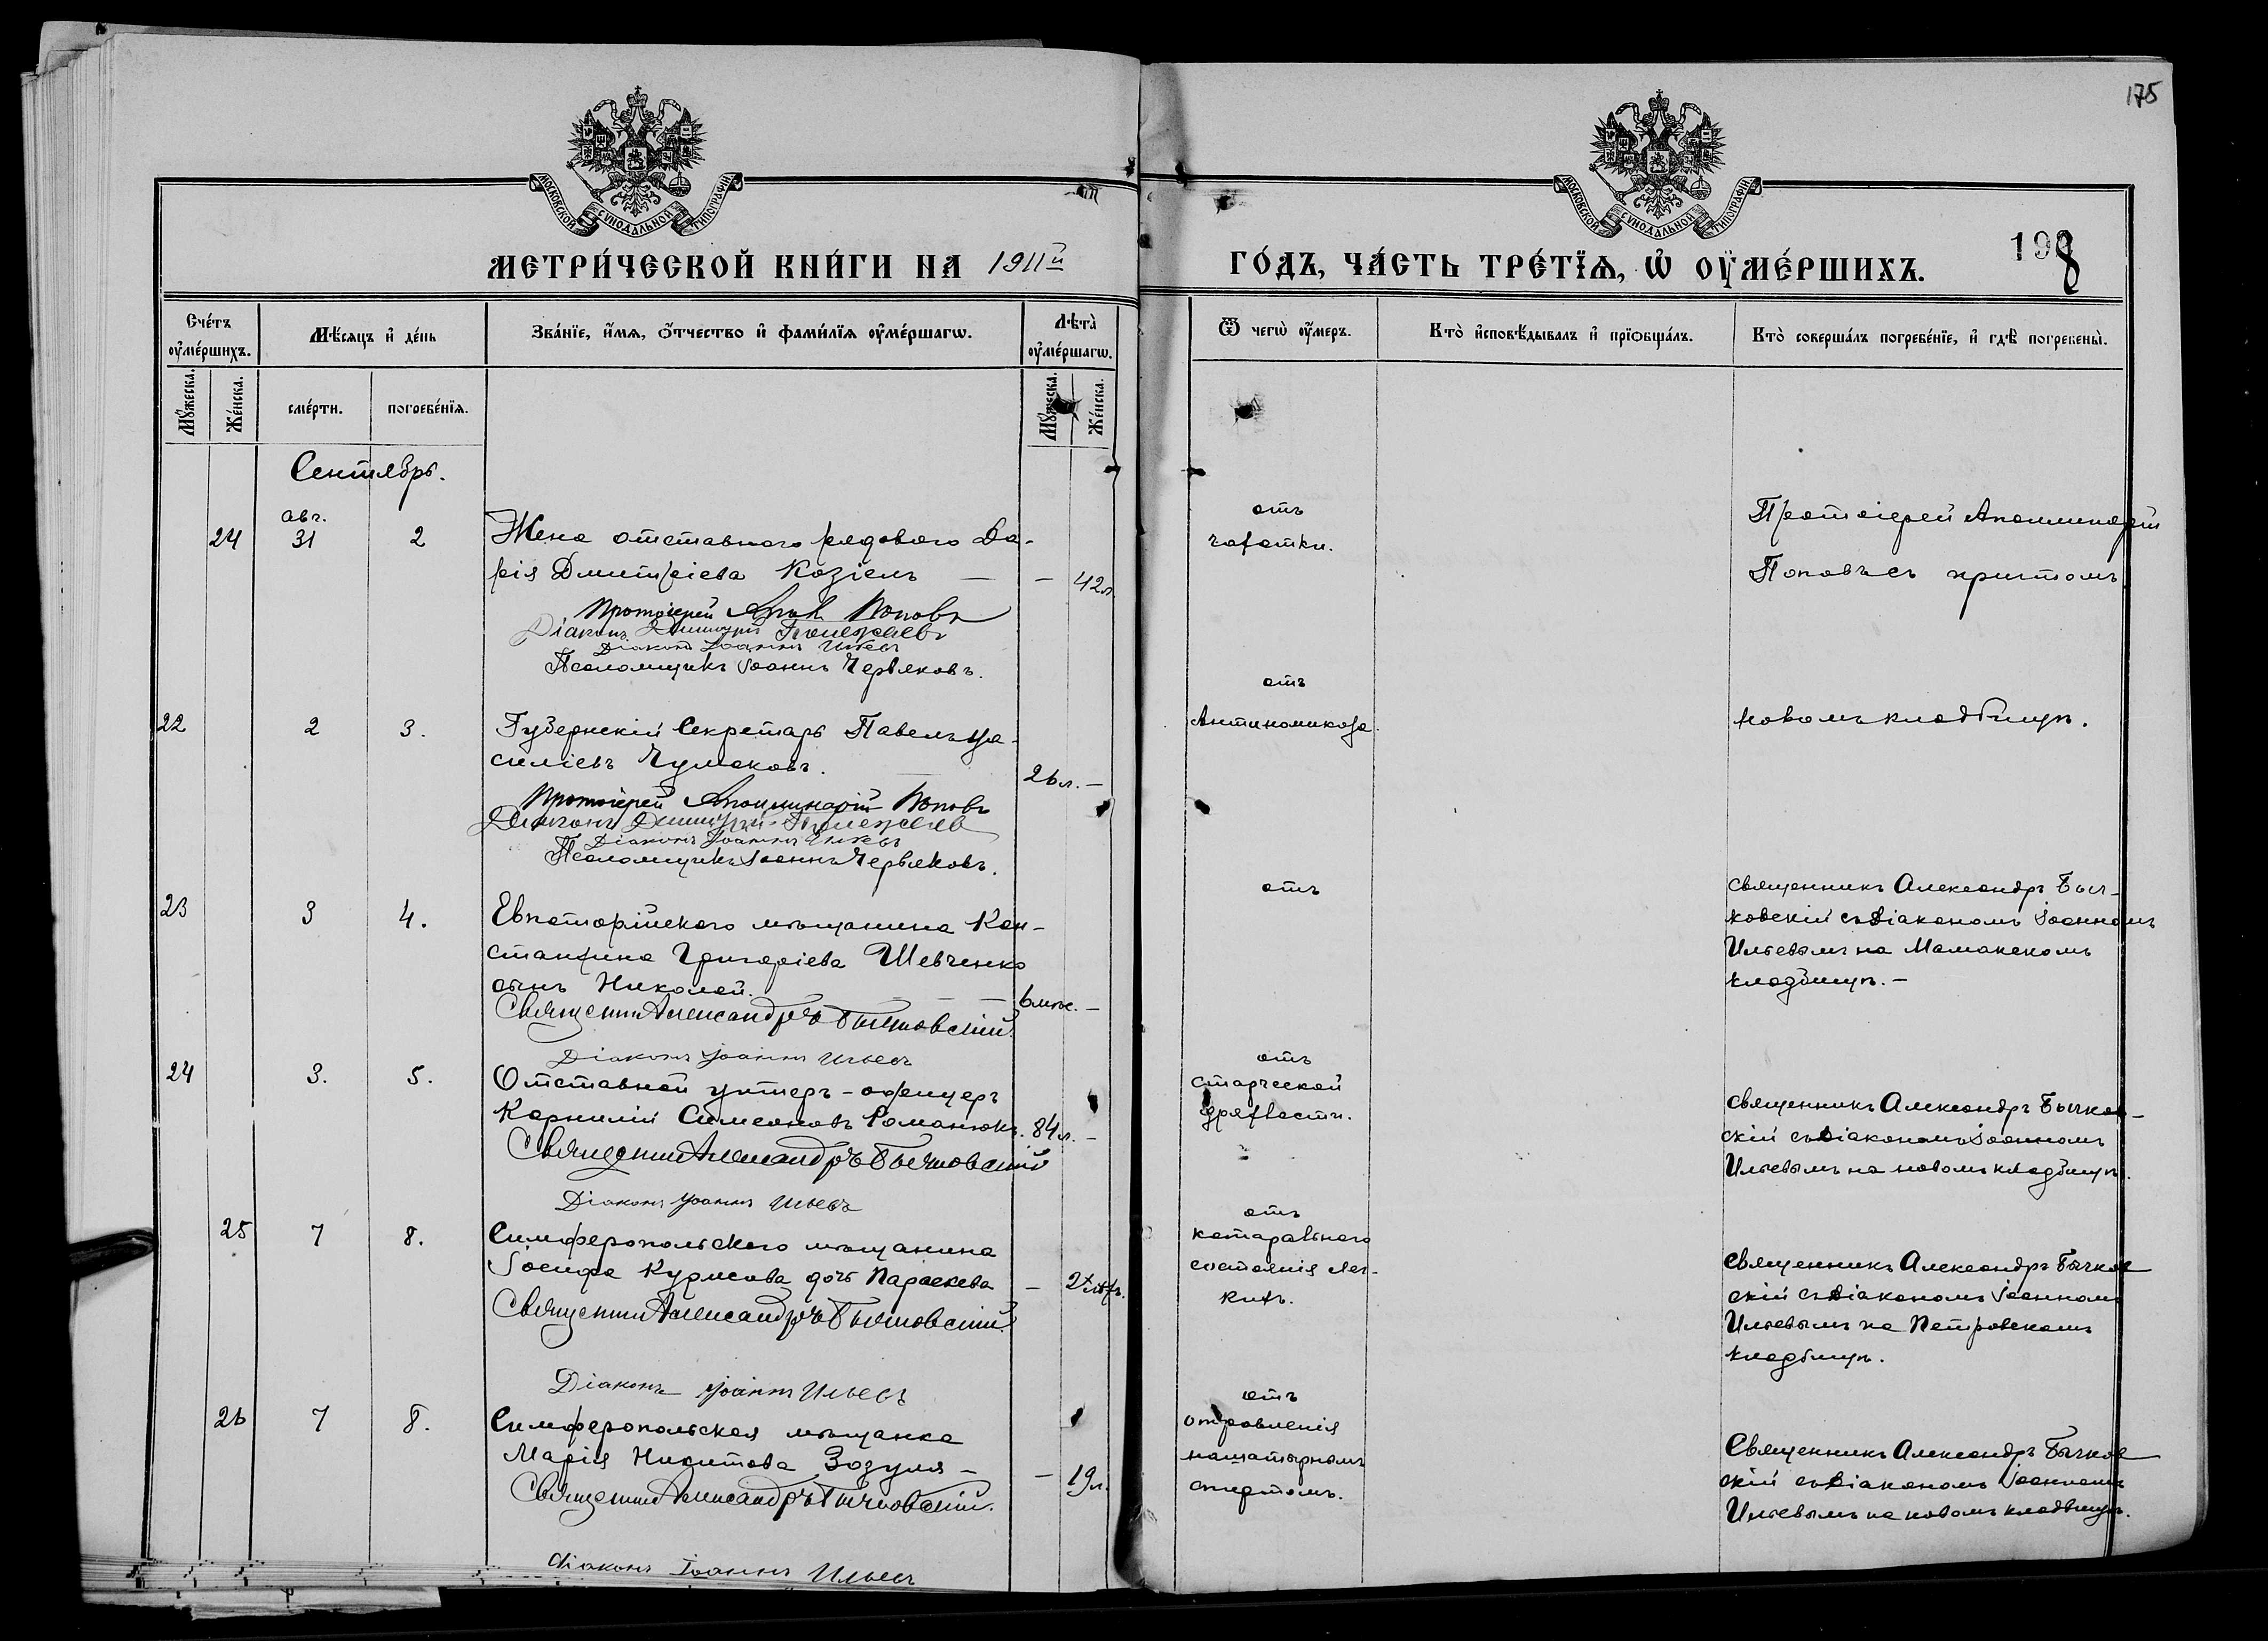 175
МОСКОВСКОЙ СѴНОДАЛЬНОЙ ТИПОГРАФІИ
МОСКОВСКОЙ СѴНОДАЛЬНОЙ ТИПОГРАФІИ
МЕТРИ́ЧЕСКОЙ КНИ́ГИ НА 1911й
ГО́ДЪ, ЧА́СТЬ ТРЕ́ТЇѦ, Ѡ҆ ОУ҆МЕ́РШИХЪ.
198
Сче́тъ оу҆ме́ршихъ.
Мѣ́сяцъ и҆ де́нь
Зва́нїе, и҆́мѧ, ѻ҆́тчество и҆ фами́лїѧ оу҆ме́ршагѡ.
Лѣта̀ оу҆ме́ршагѡ.
Ѿ чегѡ̀ оу҆́меръ.
Кто̀ и҆сповѣ́дывалъ и҆ прїѻбща́лъ.
Кто̀ соверша́лъ погребе́нїе, и҆ гдѣ̀ погребены̀.
Мꙋ́жеска.
Же́нска.
сме́рти.
погребе́нїѧ.
Мꙋ́жеска.
Же́нска.
Сентябрь.
24 авг. 31 2
Жена отставного рядового Да-
рія Дмитріева Козіелъ — — 42 л
Протоіерей Апол Поповъ
Діаконъ Димитрій
Діаконъ Іоаннъ Ильевъ
Псаломщикъ Іоаннъ Червяковъ.
отъ
чахотки.
Протоіерей Аполлинарій
Поповъ съ причтомъ
22 2 3.
Губернскій Секретарь Павелъ Ва-
силіевъ Чумаковъ. 26 л. —
Протоіерей Аполлинарій Поповъ
Діаконъ Димитрій
Діаконъ Іоаннъ Ильевъ
Псаломщикъ Іоаннъ Червяковъ.
отъ
новомъ кладбищѣ.
23 3 4.
Евпаторійскаго мѣщанина Кон-
стантина Григоріева Шевченко
сынъ Николай. — — 6 мѣс. —
Священникъ Александръ Бычковскій.
Діаконъ Іоаннъ Ильевъ
отъ
священникъ Александръ Быч-
ковскій съ діакономъ Іоанномъ
Ильевымъ на Мамакскомъ
кладбищѣ. —
24 3. 5.
Отставной унтеръ-офицеръ
Корнилій Симеоновъ Романюкъ. 84 л. —
Священникъ Александръ Бычковскій
Діаконъ Іоаннъ Ильевъ
отъ
старческой
дряхлости.
священникъ Александръ Бычков-
скій съ діакономъ Іоанномъ
Ильевымъ на новомъ кладбищѣ.
25 7 8.
Симферопольского мѣщанина
Іосифа Курисова дочь Параскева — 2 лѣтъ.
Священникъ Александръ Бычковскій.
Діаконъ Іоаннъ Ильевъ
отъ
катаральнаго
состоянія лег-
кихъ.
Священникъ Александръ Бычков
скій съ діакономъ Іоанномъ
Ильевымъ на Петровскомъ
кладбищѣ.
26 7 8.
Симферопольская мѣщанка
Марія Никитова Зозуля — — 19 л.
Священникъ Александръ Бычковскій.
діаконъ Іоаннъ Ильевъ
отъ
отравленія
нашатырнымъ
спиртомъ.
Священникъ Александръ Бычков
скій съ діакономъ Іоанномъ
Ильевымъ на новомъ кладбищѣ.